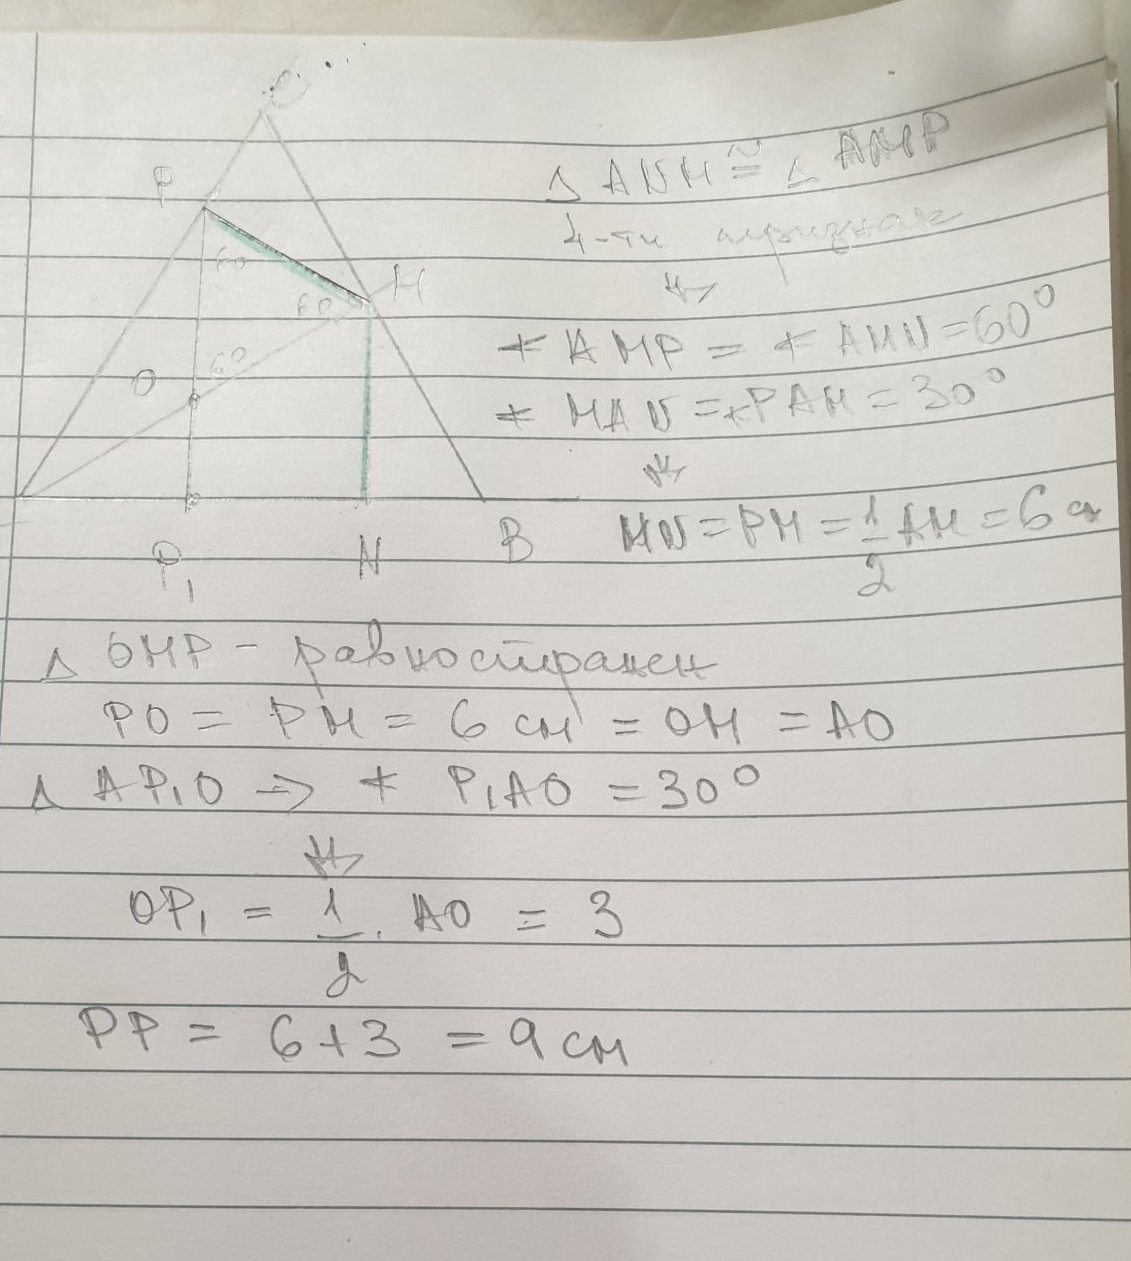 C
P
60
60 M
O 60
P₁ N B
Δ ANM ≅ Δ AMP
4-ти признак
⇓
∢ AMP = ∢ AMN = 60°
∢ MAN = ∢ PAM = 30°
⇓
MN = PM = 1/2 AM = 6 см
Δ OMP - равностранен
PO = PM = 6 см = OM = AO
Δ AP₁O => ∢ P₁AO = 30°
⇓
OP₁ = 1/2 . AO = 3
PP = 6+3 = 9 см